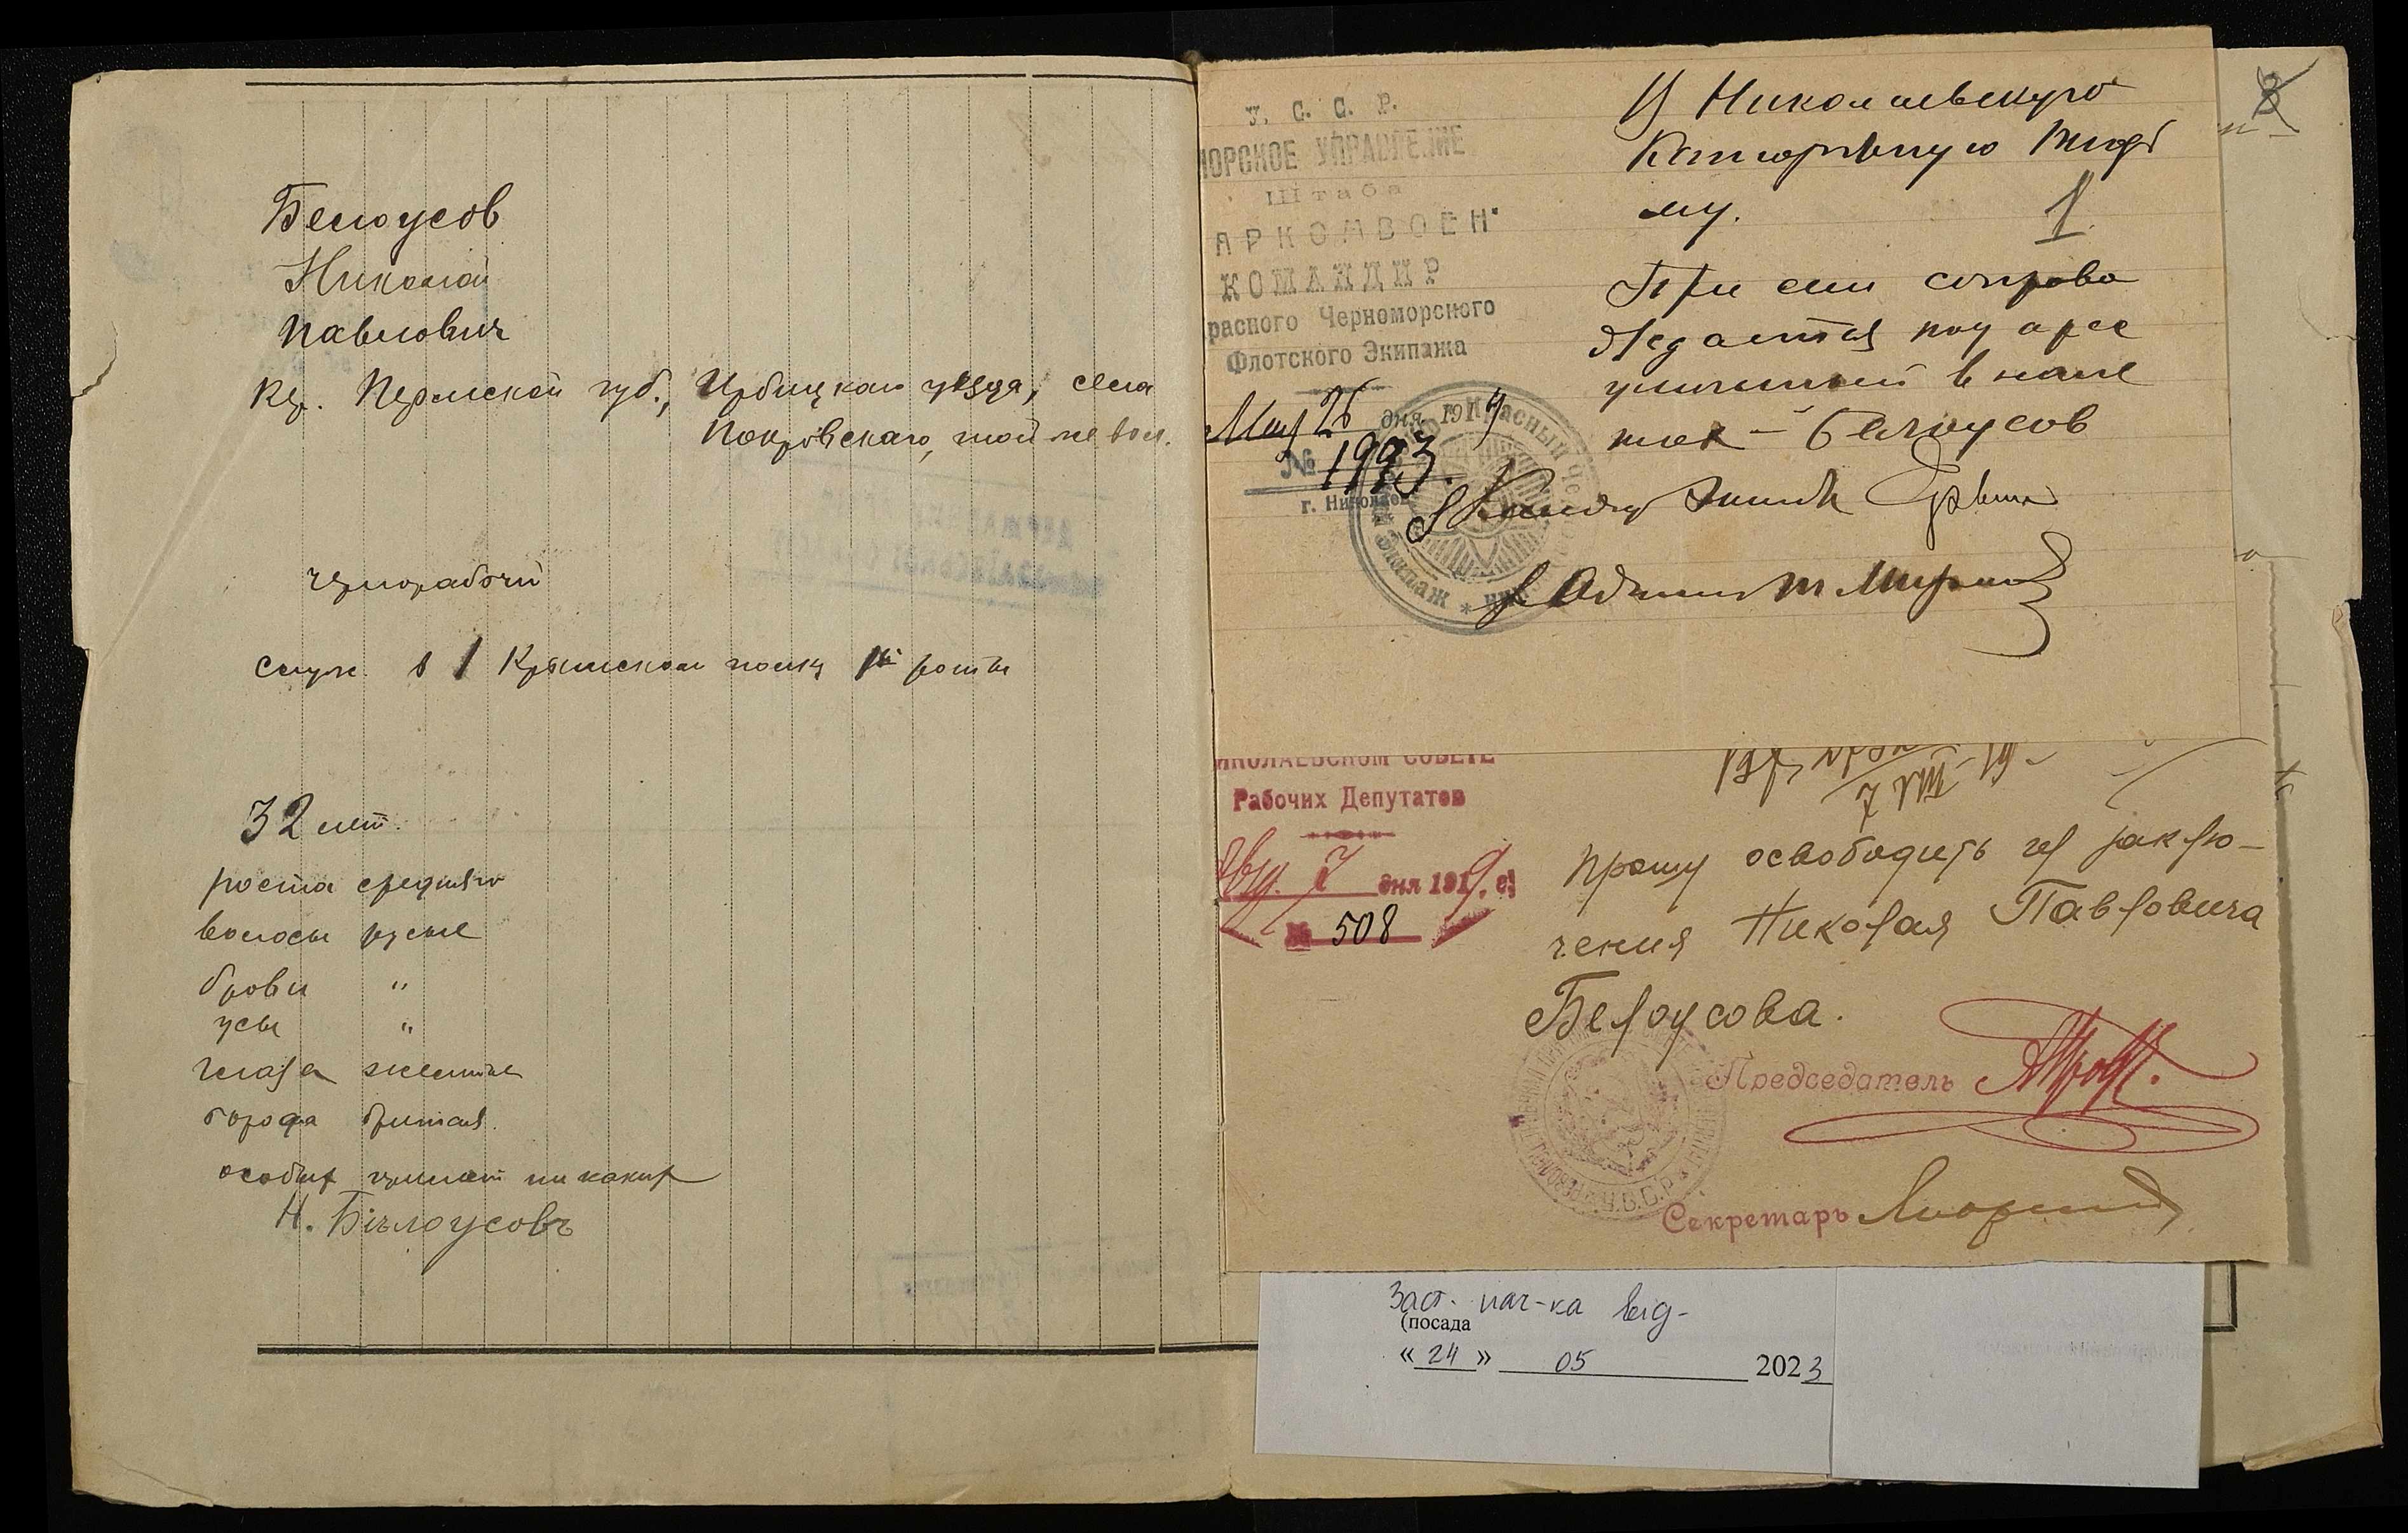 Белоусов
Николай
Павлович
Кр. Пермской губ., Ирбицкаго уезда, села
Покровскаго, той-же вол.
чернорабочий
служ. в 1 Крымском полку 1й роты
32 лет.
роста средняго
волосы русые
брови "
усы "
глаза желтые
борода бритая.
особых примет никаких
Н. Бѣлоусовъ
У. С. С. Р.
МОРСКОЕ УПРАВЛЕНИЕ
Штаба
АРКОМВОЕН
КОМАНДИР
расного Черноморского
Флотского Экипажа
Мая 26 дня 1919
№ 1993.
г. Николаев
В Николаевскую
Каторжную Тюрь
му.
1
При сем сопрово
ждается под арес
ник - Белоусов
8
ИКОЛАЕВСКОМ СОВЕТЕ
Рабочих Депутатов
Авг. 7 дня 1919 г.
№ 508
7 VIII-19
Прошу освободить из заклю-
чения Николая Павловича
Белоусова.
Председатель
Секретарь
Заст. нач-ка від-
(посада
« 24 » 05 2023